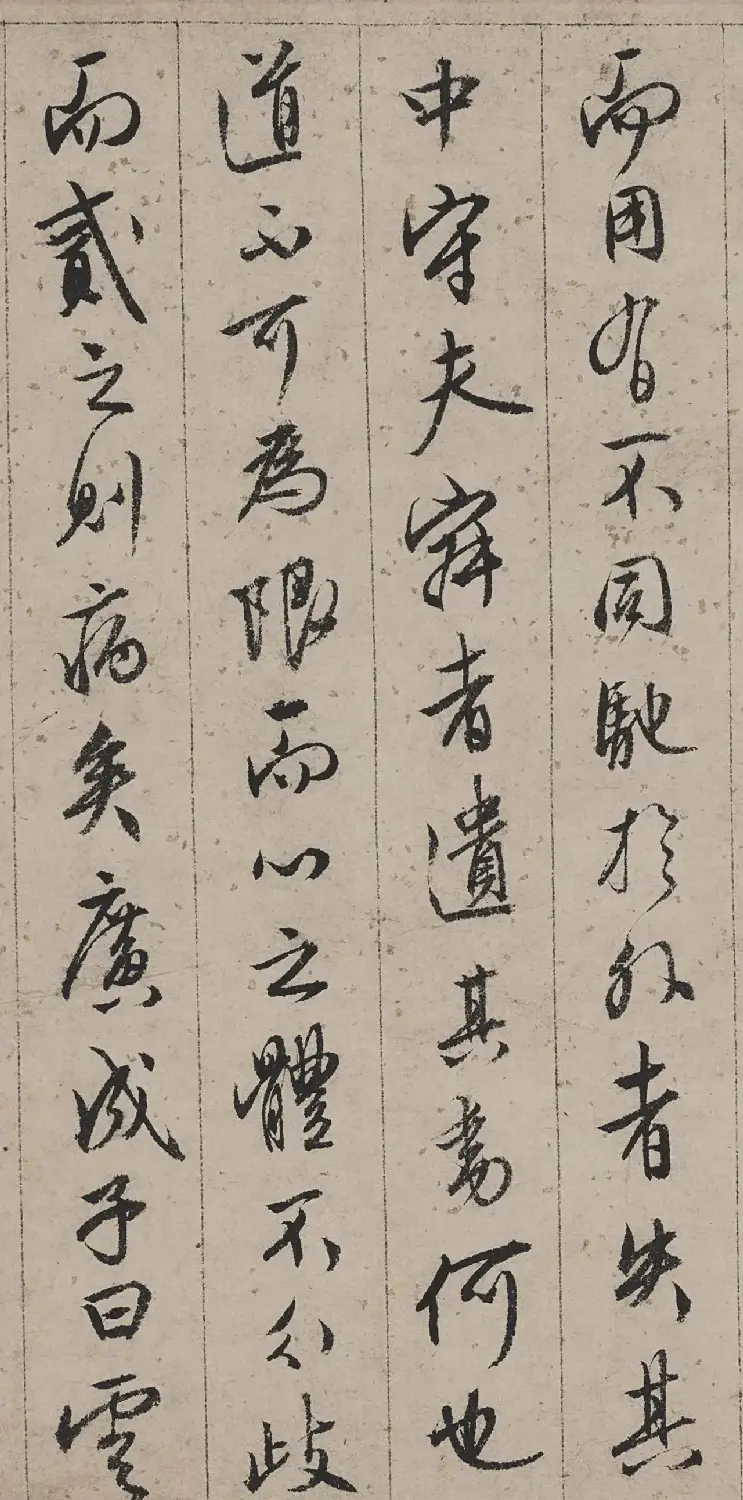 而用有不同馳於外者失其
中守夫者遺其旁何也
道不可為限而心之體不分歧
而貳之則病矣廣成子曰雲